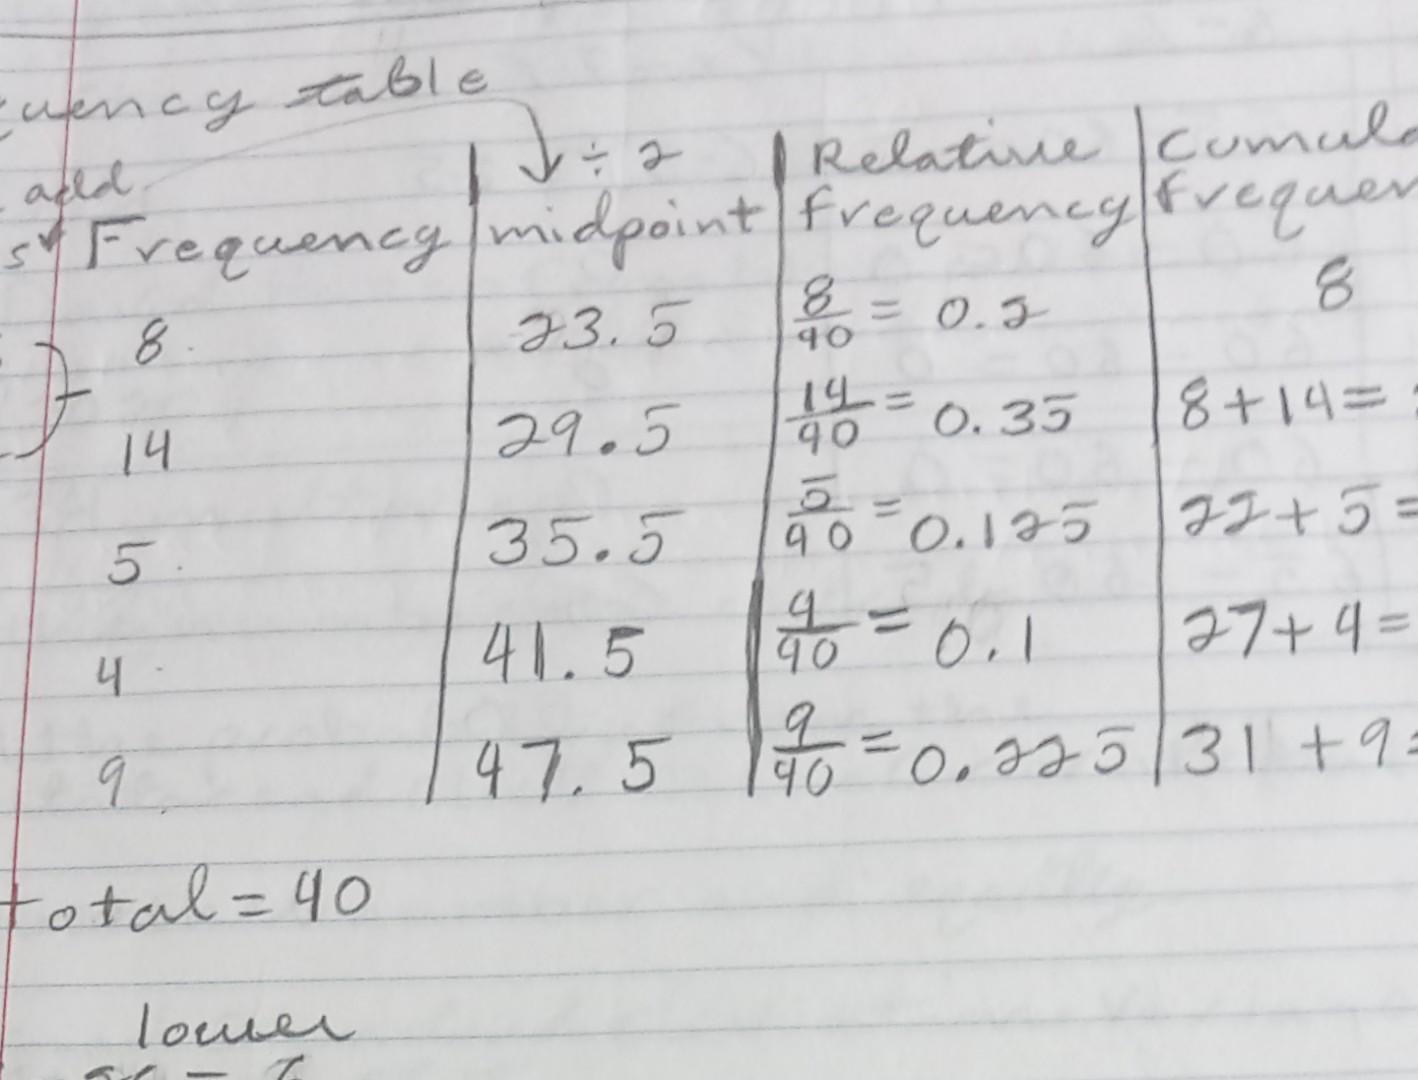 uency table
add ÷ 2 Relative Cumula
s Frequency midpoint frequency frequen
8 23.5 8/40 = 0.2 8
14 29.5 14/40 = 0.35 8+14=
5 35.5 5/40 = 0.125 22+5=
4 41.5 4/40 = 0.1 27+4=
9 47.5 9/40 = 0.225 31+9=
total = 40
lower